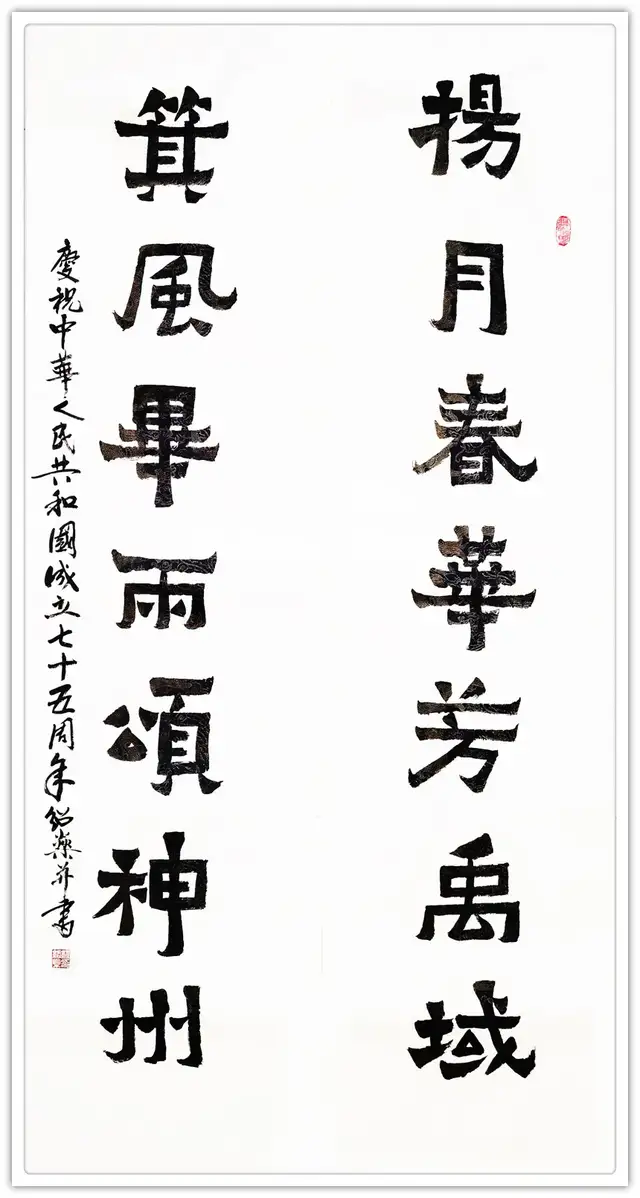 揚月春華芳禹域
箕風畢雨頌神州
慶祝中華人民共和國成立七十五周年 并書